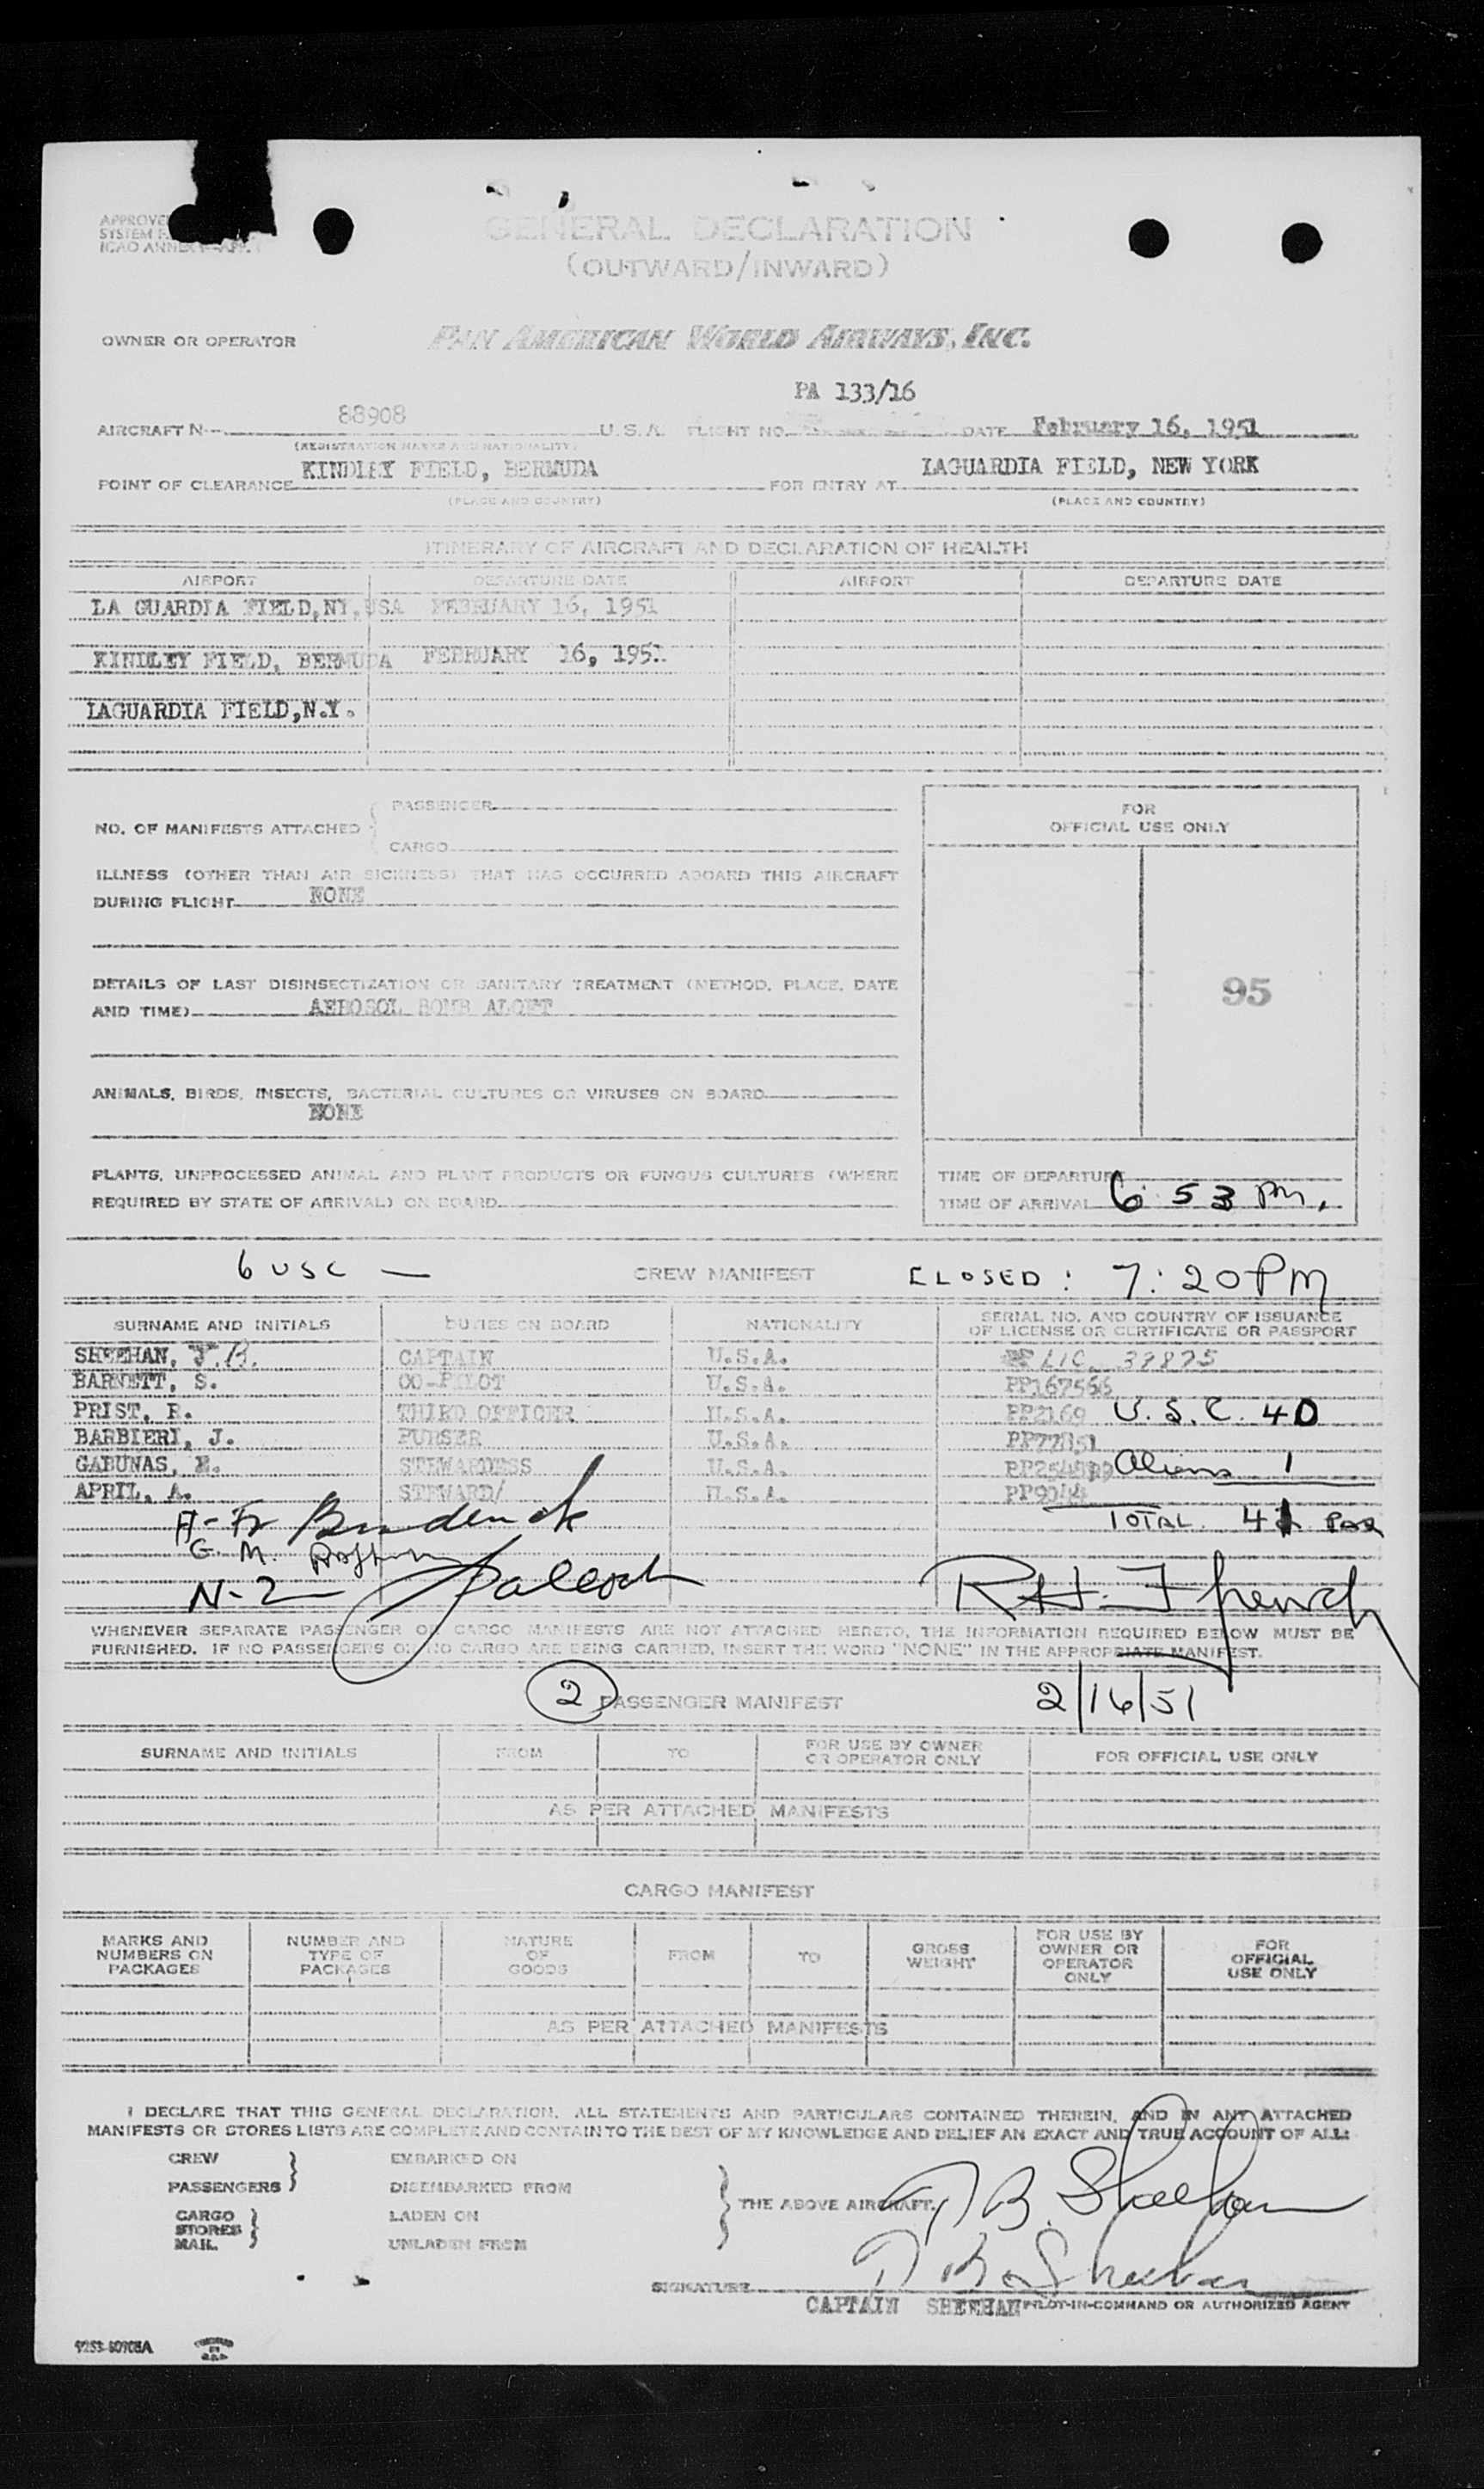 APPROVE
SYSTEM
ICAO ANNE
GENERAL DECLARATION
(OUTWARD/INWARD)
OWNER OR OPERATOR PAN AMERICAN WORLD AIRWAYS, INC.
PA 133/16
AIRCRAFT N-- 88908 U.S.A. FLIGHT NO. DATE February 16, 1951
(REGISTRATION MARKS AND NATIONALITY)
POINT OF CLEARANCE KINDLEY FIELD, BERMUDA FOR ENTRY AT LAGUARDIA FIELD, NEW YORK
(PLACE AND COUNTRY) (PLACE AND COUNTRY)
ITINERARY OF AIRCRAFT AND DECLARATION OF HEALTH
AIRPORT DEPARTURE DATE AIRPORT DEPARTURE DATE
LA GUARDIA FIELD,NY,USA FEBRUARY 16, 1951
KINDLEY FIELD, BERMUDA FEBRUARY 16, 1951
LAGUARDIA FIELD,N.Y.
NO. OF MANIFESTS ATTACHED { PASSENGER
CARGO
FOR
OFFICIAL USE ONLY
ILLNESS (OTHER THAN AIR SICKNESS) THAT HAS OCCURRED ABOARD THIS AIRCRAFT
DURING FLIGHT NONE
DETAILS OF LAST DISINSECTIZATION OR SANITARY TREATMENT (METHOD, PLACE, DATE
AND TIME) AEROSOL BOMB ALOFT
95
ANIMALS, BIRDS, INSECTS, BACTERIAL CULTURES OR VIRUSES ON BOARD
NONE
PLANTS, UNPROCESSED ANIMAL AND PLANT PRODUCTS OR FUNGUS CULTURES (WHERE
REQUIRED BY STATE OF ARRIVAL) ON BOARD
TIME OF DEPARTURE
TIME OF ARRIVAL 6:53 PM.
6 USC — CREW MANIFEST CLOSED: 7:20 PM
SURNAME AND INITIALS DUTIES ON BOARD NATIONALITY SERIAL NO. AND COUNTRY OF ISSUANCE
OF LICENSE OR CERTIFICATE OR PASSPORT
SHEEHAN, J.B. CAPTAIN U.S.A. LIC 39875
BARNETT, S. CO-PILOT U.S.A. PP167566
PRIST, R. THIRD OFFICER U.S.A. PP2169 U.S.C. 40
BARBIERI, J. PURSER U.S.A. PP77851
GABUNAS, E. STEWARDESS U.S.A. Aliens 1
APRIL, A. STEWARD/ U.S.A. PP9044
TOTAL 41 PAX
G. M.
N-2
R.H. French
WHENEVER SEPARATE PASSENGER OR CARGO MANIFESTS ARE NOT ATTACHED HERETO, THE INFORMATION REQUIRED BELOW MUST BE
FURNISHED. IF NO PASSENGERS OR NO CARGO ARE BEING CARRIED, INSERT THE WORD "NONE" IN THE APPROPRIATE MANIFEST.
2 PASSENGER MANIFEST 2/16/51
SURNAME AND INITIALS FROM TO FOR USE BY OWNER
OR OPERATOR ONLY FOR OFFICIAL USE ONLY
AS PER ATTACHED MANIFESTS
CARGO MANIFEST
MARKS AND
NUMBERS ON
PACKAGES
NUMBER AND
TYPE OF
PACKAGES
NATURE
OF
GOODS
FROM
TO
GROSS
WEIGHT
FOR USE BY
OWNER OR
OPERATOR
ONLY
FOR
OFFICIAL
USE ONLY
AS PER ATTACHED MANIFESTS
I DECLARE THAT THIS GENERAL DECLARATION, ALL STATEMENTS AND PARTICULARS CONTAINED THEREIN, AND IN ANY ATTACHED
MANIFESTS OR STORES LISTS ARE COMPLETE AND CONTAIN TO THE BEST OF MY KNOWLEDGE AND BELIEF AN EXACT AND TRUE ACCOUNT OF ALL:
CREW EMBARKED ON
PASSENGERS DISEMBARKED FROM
THE ABOVE AIRCRAFT. J B. Sheehan
CARGO LADEN ON
STORES
MAIL UNLADEN FROM
SIGNATURE J B. Sheehan
CAPTAIN SHEEHAN PILOT-IN-COMMAND OR AUTHORIZED AGENT